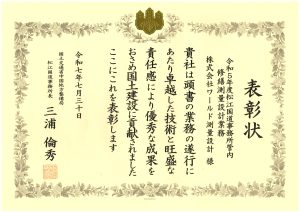 表彰状
令和5年度松江国道事務所管内
修繕測量設計業務
株式会社ワールド測量設計 様
貴社は頭書の業務の遂行に
あたり卓越した技術と旺盛な
責任感により優秀な成果を
おさめ国土建設に貢献されました
ここにこれを表彰します
令和七年七月三十日
国土交通省中国地方整備局
松江国道事務所長
三浦 倫秀